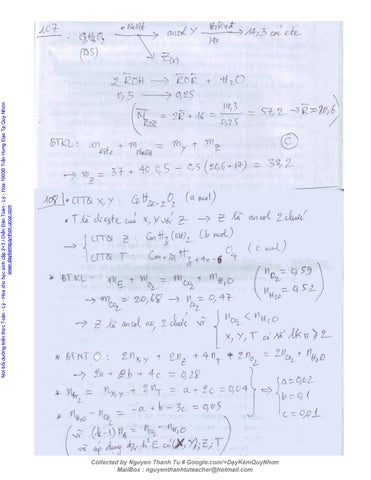 107.
+ NaOH
ancol Y
H2SO4đ
140
14,3 các ete
(0,5)
Z(r)
2 R̄OH → R̄OR̄ + H2O
0,5 → 0,25
(M̄R̄OR̄ = 2R̄ + 16 = 14,3/0,25 = 57,2 → R̄ = 20,6)
BTKL: m este + m NaOH = mY + mZ
(C)
→ mZ = 37 + 40.0,5 - 0,5(20,6+17) = 38,2
108
• CTTQ X, Y: CnH2n-2O2 (a mol)
• T là đieste của X, Y với Z → Z là ancol 2 chức
CTTQ Z: (b mol)
CTTQ T: (c mol)
* BTKL: mE + mO2 = mCO2 + mH2O
(nO2 = 0,59
nH2O = 0,52)
→ mCO2 = 20,68 → nCO2 = 0,47
→ Z là ancol no, 2 chức vì { nCO2 < nH2O
X, Y, T có số lk π ≥ 2
* BTNT O: 2nX,Y + 2nZ + 4nT + 2nO2 = 2nCO2 + nH2O
→ 2a + 2b + 4c = 0,28
* nBr2 = nX,Y + 2nT = a + 2c = 0,04
* nH2O - nCO2 = -a + b - 3c = 0,05
a = 0,02
b = 0,1
c = 0,01
(vì (k-1)nA = nCO2 - nH2O
và áp dụng E (X, Y); Z; T)
Nơi bồi dưỡng kiến thức Toán - Lý - Hóa cho học sinh cấp 2+3 / Diễn Đàn Toán - Lý - Hóa 1000B Trần Hưng Đạo Tp.Quy Nhơn
www.daykemquynhon.ucoz.com
Collected by Nguyen Thanh Tu # Google.com/+DạyKèmQuyNhơn
MailBox : nguyenthanhtuteacher@hotmail.com